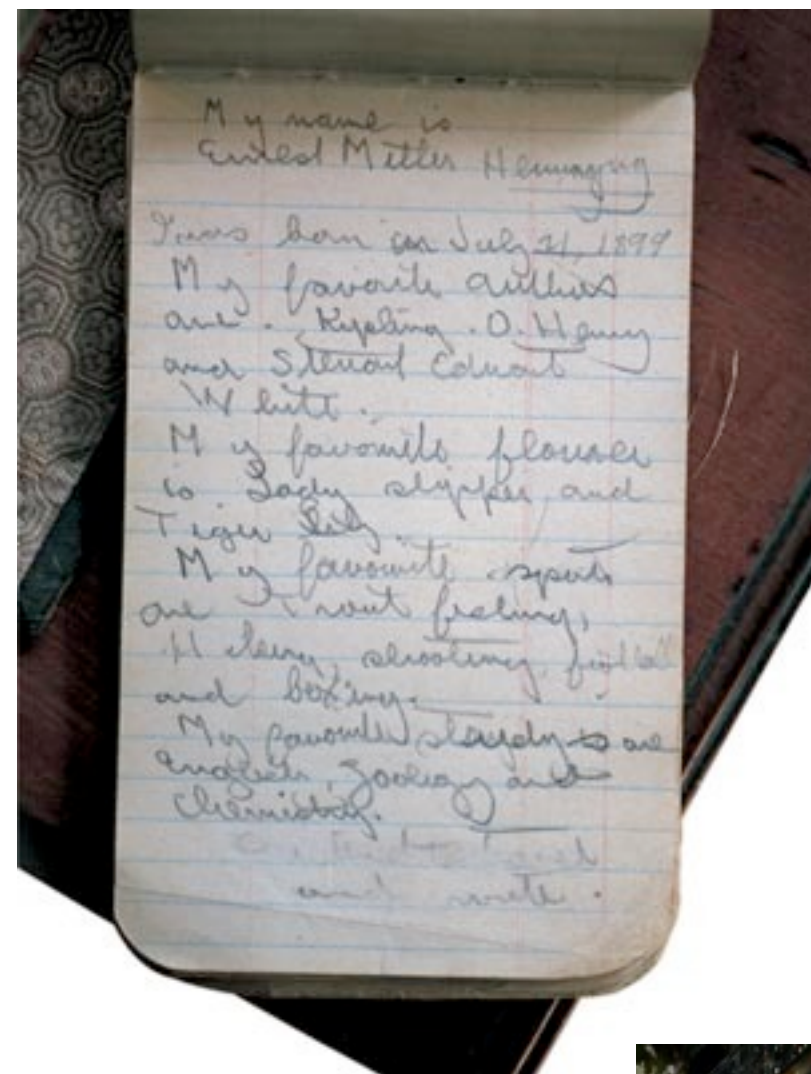 My name is
Ernest Miller Hemingway
I was born on July 21, 1899
My favorite authors
are . Kipling . O. Henry
and Steuart Edward
White .
My favorite flower
is Lady slipper and
Tiger Lily.
My favorite sports
are Trout fishing,
Hiking, shooting, football
and boxing.
My favorite studys are
English, Zoology and
Chemistry.
I intend to travel
and write .